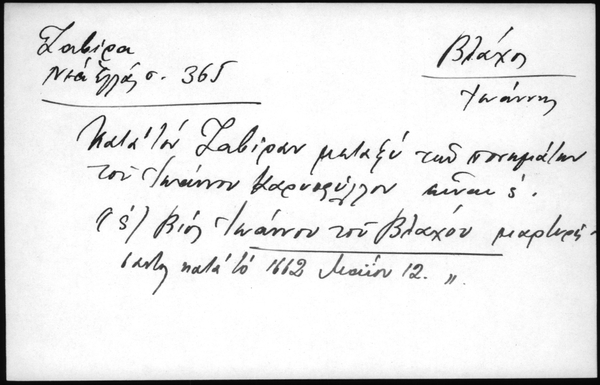 Ζαβίρα
Νέα Ἑλλάς σ. 365
Βλάχος
Ἰωάννης
Κατὰ τὸν Ζαβίραν μεταξὺ τῶν ποιημάτων
τοῦ Ἰωάννου Καρυοφύλλου εἶναι ὁ.
"ὁ) Βίος Ἰωάννου τοῦ Βλάχου μαρτυρή-
σαντος κατὰ τὸ 1662 Μαΐου 12. "